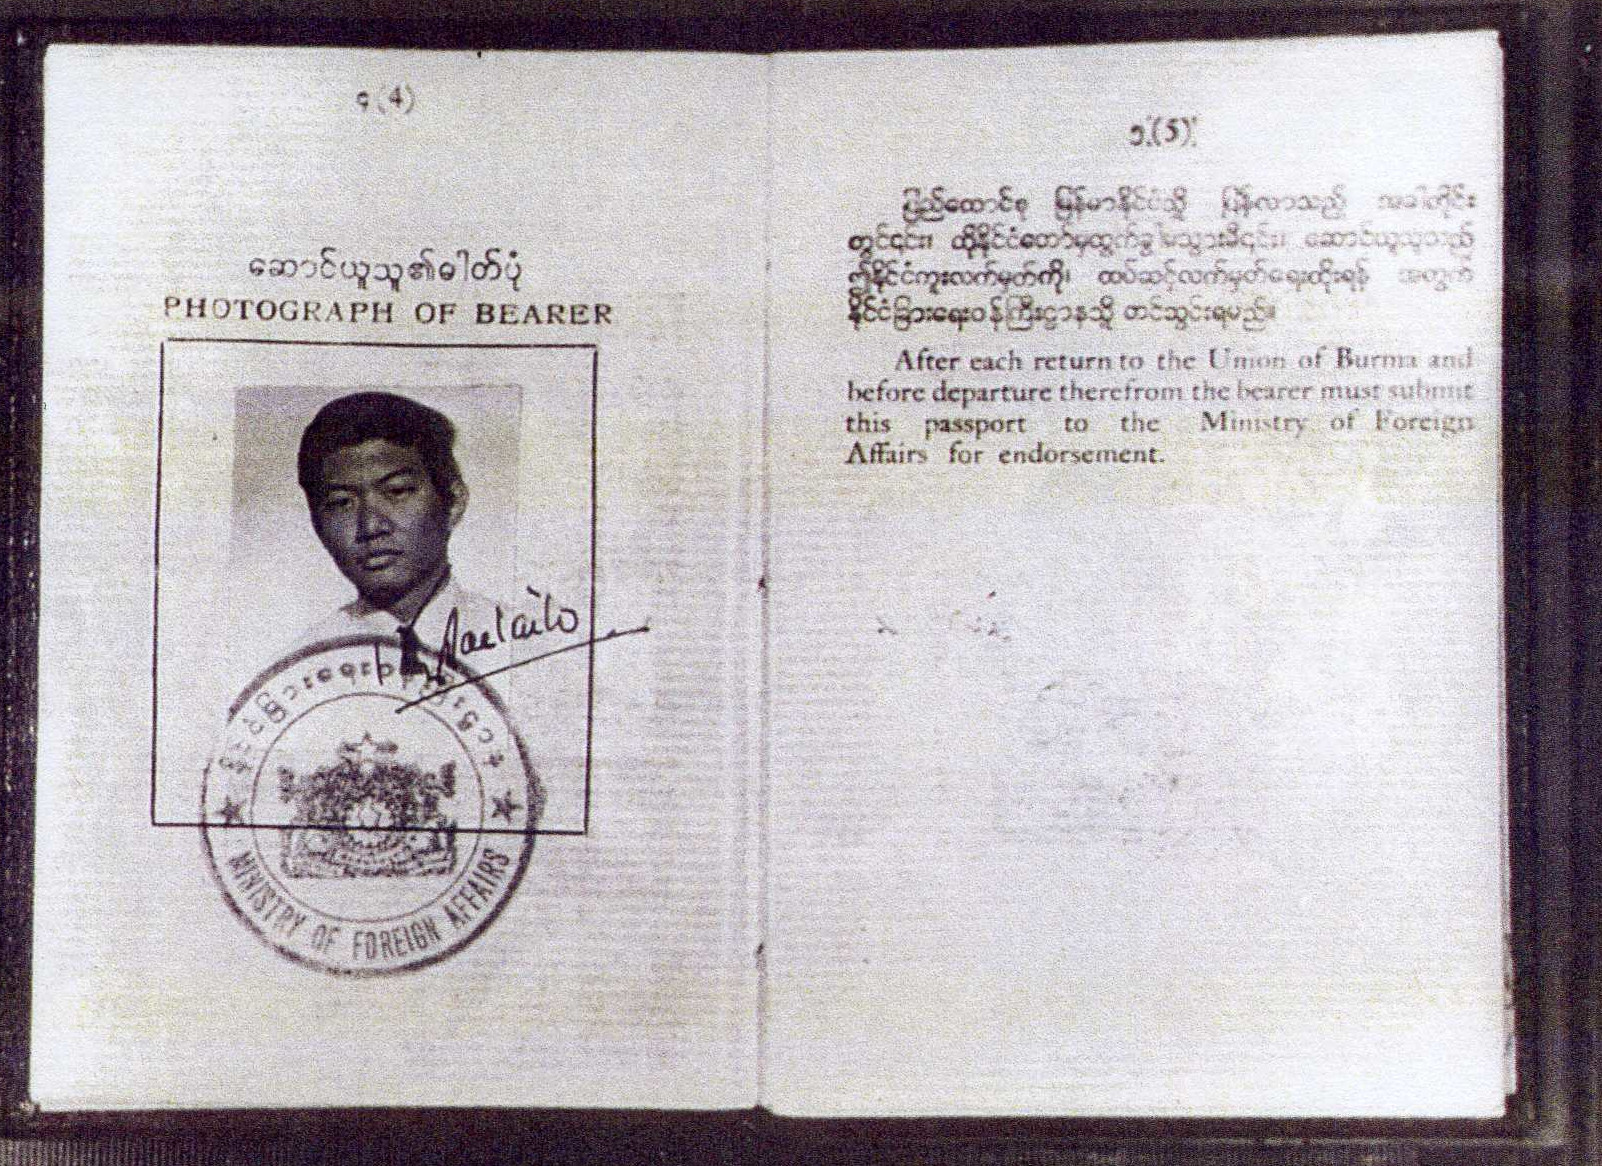 ၄ (4)
ဆောင်ယူသူ၏ဓါတ်ပုံ
PHOTOGRAPH OF BEARER
MINISTRY OF FOREIGN AFFAIRS
၅ (5)
ပြည်ထောင်စု မြန်မာနိုင်ငံသို့ ပြန်လာသည့် အခါတိုင်း
တွင်၎င်း၊ ထိုနိုင်ငံတော်မှထွက်ခွါမသွားမီ၎င်း၊ ဆောင်ယူသူသည်
ဤနိုင်ငံကူးလက်မှတ်ကို၊ ထပ်ဆင့်လက်မှတ်ရေးထိုးရန် အတွက်
နိုင်ငံခြားရေးဝန်ကြီးဌာနသို့ တင်သွင်းရမည်။
After each return to the Union of Burma and
before departure therefrom the bearer must submit
this passport to the Ministry of Foreign
Affairs for endorsement.